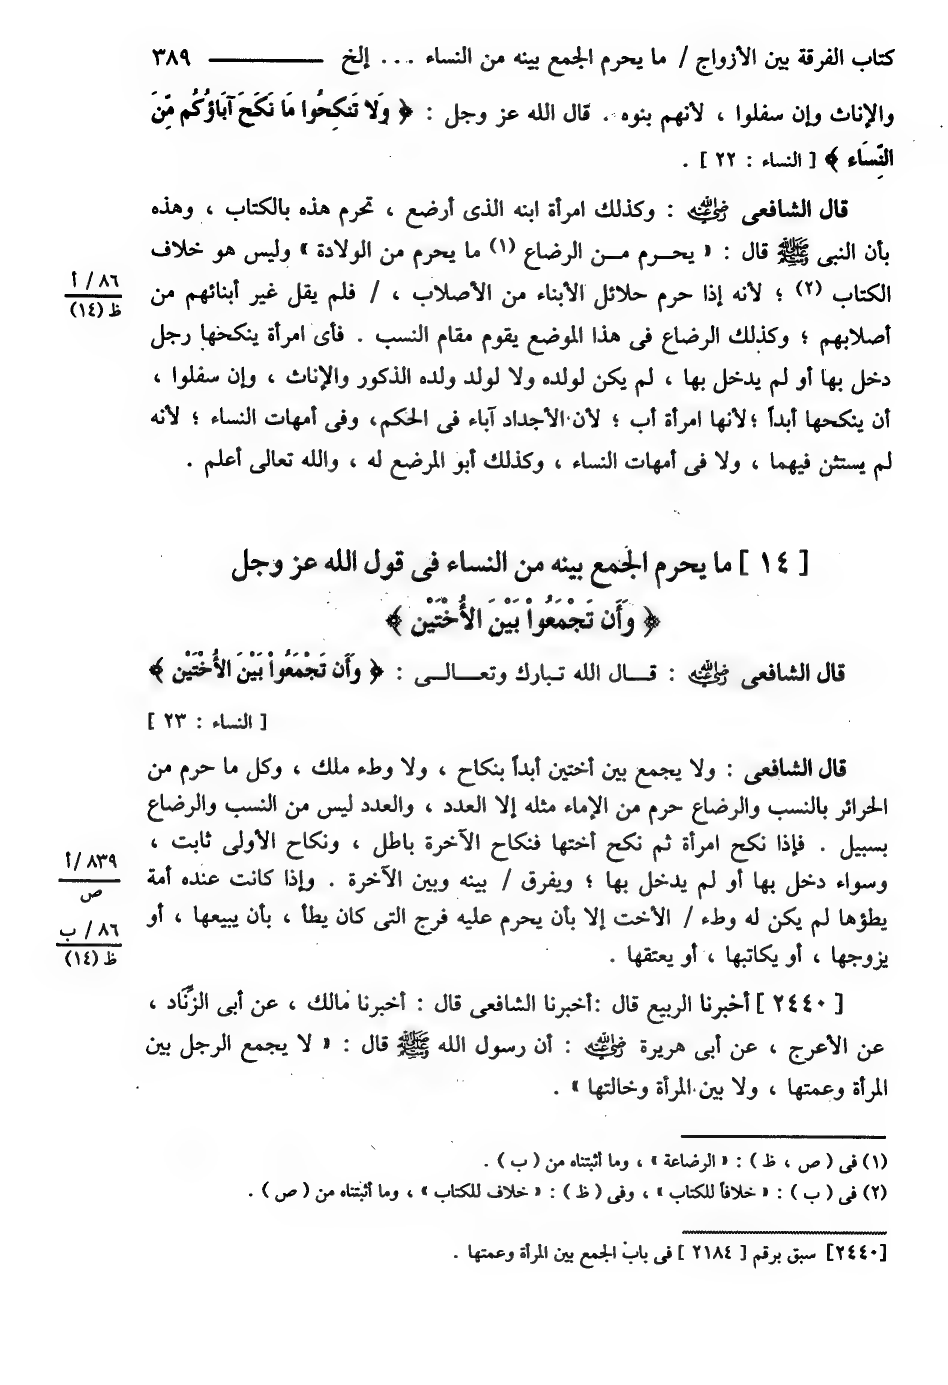 كتاب الفرقة بين الأزواج / ما يحرم الجمع بينه من النساء ... إلخ ــــــــــ ٣٨٩
والإناث وإن سفلوا ، لأنهم بنوه . قال الله عز وجل : ﴿ وَلَا تَنكِحُوا مَا نَكَحَ آبَاؤُكُم مِّنَ
النِّسَاءِ ﴾ [ النساء : ٢٢ ] .
قال الشافعى رضي الله عنه : وكذلك امرأة ابنه الذى أرضع ، تحرم هذه بالكتاب ، وهذه
بأن النبى ﷺ قال : « يحــرم مــن الرضاع (١) ما يحرم من الولادة » وليس هو خلاف
الكتاب (٢) ؛ لأنه إذا حرم حلائل الأبناء من الأصلاب ، / فلم يقل غير أبنائهم من
٨٦ / أ
ظ (١٤)
أصلابهم ؛ وكذلك الرضاع فى هذا الموضع يقوم مقام النسب . فأى امرأة ينكحها رجل
دخل بها أو لم يدخل بها ، لم يكن لولده ولا لولد ولده الذكور والإناث ، وإن سفلوا ،
أن ينكحها أبداً ؛ لأنها امرأة أب ؛ لأن الأجداد آباء فى الحكم، وفى أمهات النساء ؛ لأنه
لم يستثن فيهما ، ولا فى أمهات النساء ، وكذلك أبو المرضع له ، والله تعالى أعلم .
[ ١٤ ] ما يحرم الجمع بينه من النساء فى قول الله عز وجل
﴿ وَأَن تَجْمَعُوا بَيْنَ الأُخْتَيْنِ ﴾
قال الشافعى رضي الله عنه : قــال الله تبارك وتعــالــى : ﴿ وَأَن تَجْمَعُوا بَيْنَ الأُخْتَيْنِ ﴾
[ النساء : ٢٣ ]
قال الشافعى : ولا يجمع بين أختين أبداً بنكاح ، ولا وطء ملك ، وكل ما حرم من
الحرائر بالنسب والرضاع حرم من الإماء مثله إلا العدد ، والعدد ليس من النسب والرضاع
بسبيل . فإذا نكح امرأة ثم نكح أختها فنكاح الآخرة باطل ، ونكاح الأولى ثابت ،
وسواء دخل بها أو لم يدخل بها ؛ ويفرق / بينه وبين الآخرة . وإذا كانت عنده أمة
٨٣٩ /أ
ص
يطؤها لم يكن له وطء / الأخت إلا بأن يحرم عليه فرج التى كان يطأ ، بأن يبيعها ، أو
٨٦ / ب
ظ (١٤)
يزوجها ، أو يكاتبها ، أو يعتقها .
[ ٢٤٤٠ ] أخبرنا الربيع قال :أخبرنا الشافعى قال : أخبرنا مالك ، عن أبى الزِّنَاد ،
عن الأعرج ، عن أبى هريرة رضي الله عنه : أن رسول الله ﷺ قال : « لا يجمع الرجل بين
المرأة وعمتها ، ولا بين المرأة وخالتها » .
(١) فى ( ص ، ظ ) : « الرضاعة » ، وما أثبتناه من ( ب ) .
(٢) فى ( ب ) : « خلافاً للكتاب » ، وفى ( ظ ) : « خلاف للكتاب » ، وما أثبتناه من ( ص ) .
[٢٤٤٠] سبق برقم [ ٢١٨٤ ] فى باب الجمع بين المرأة وعمتها .